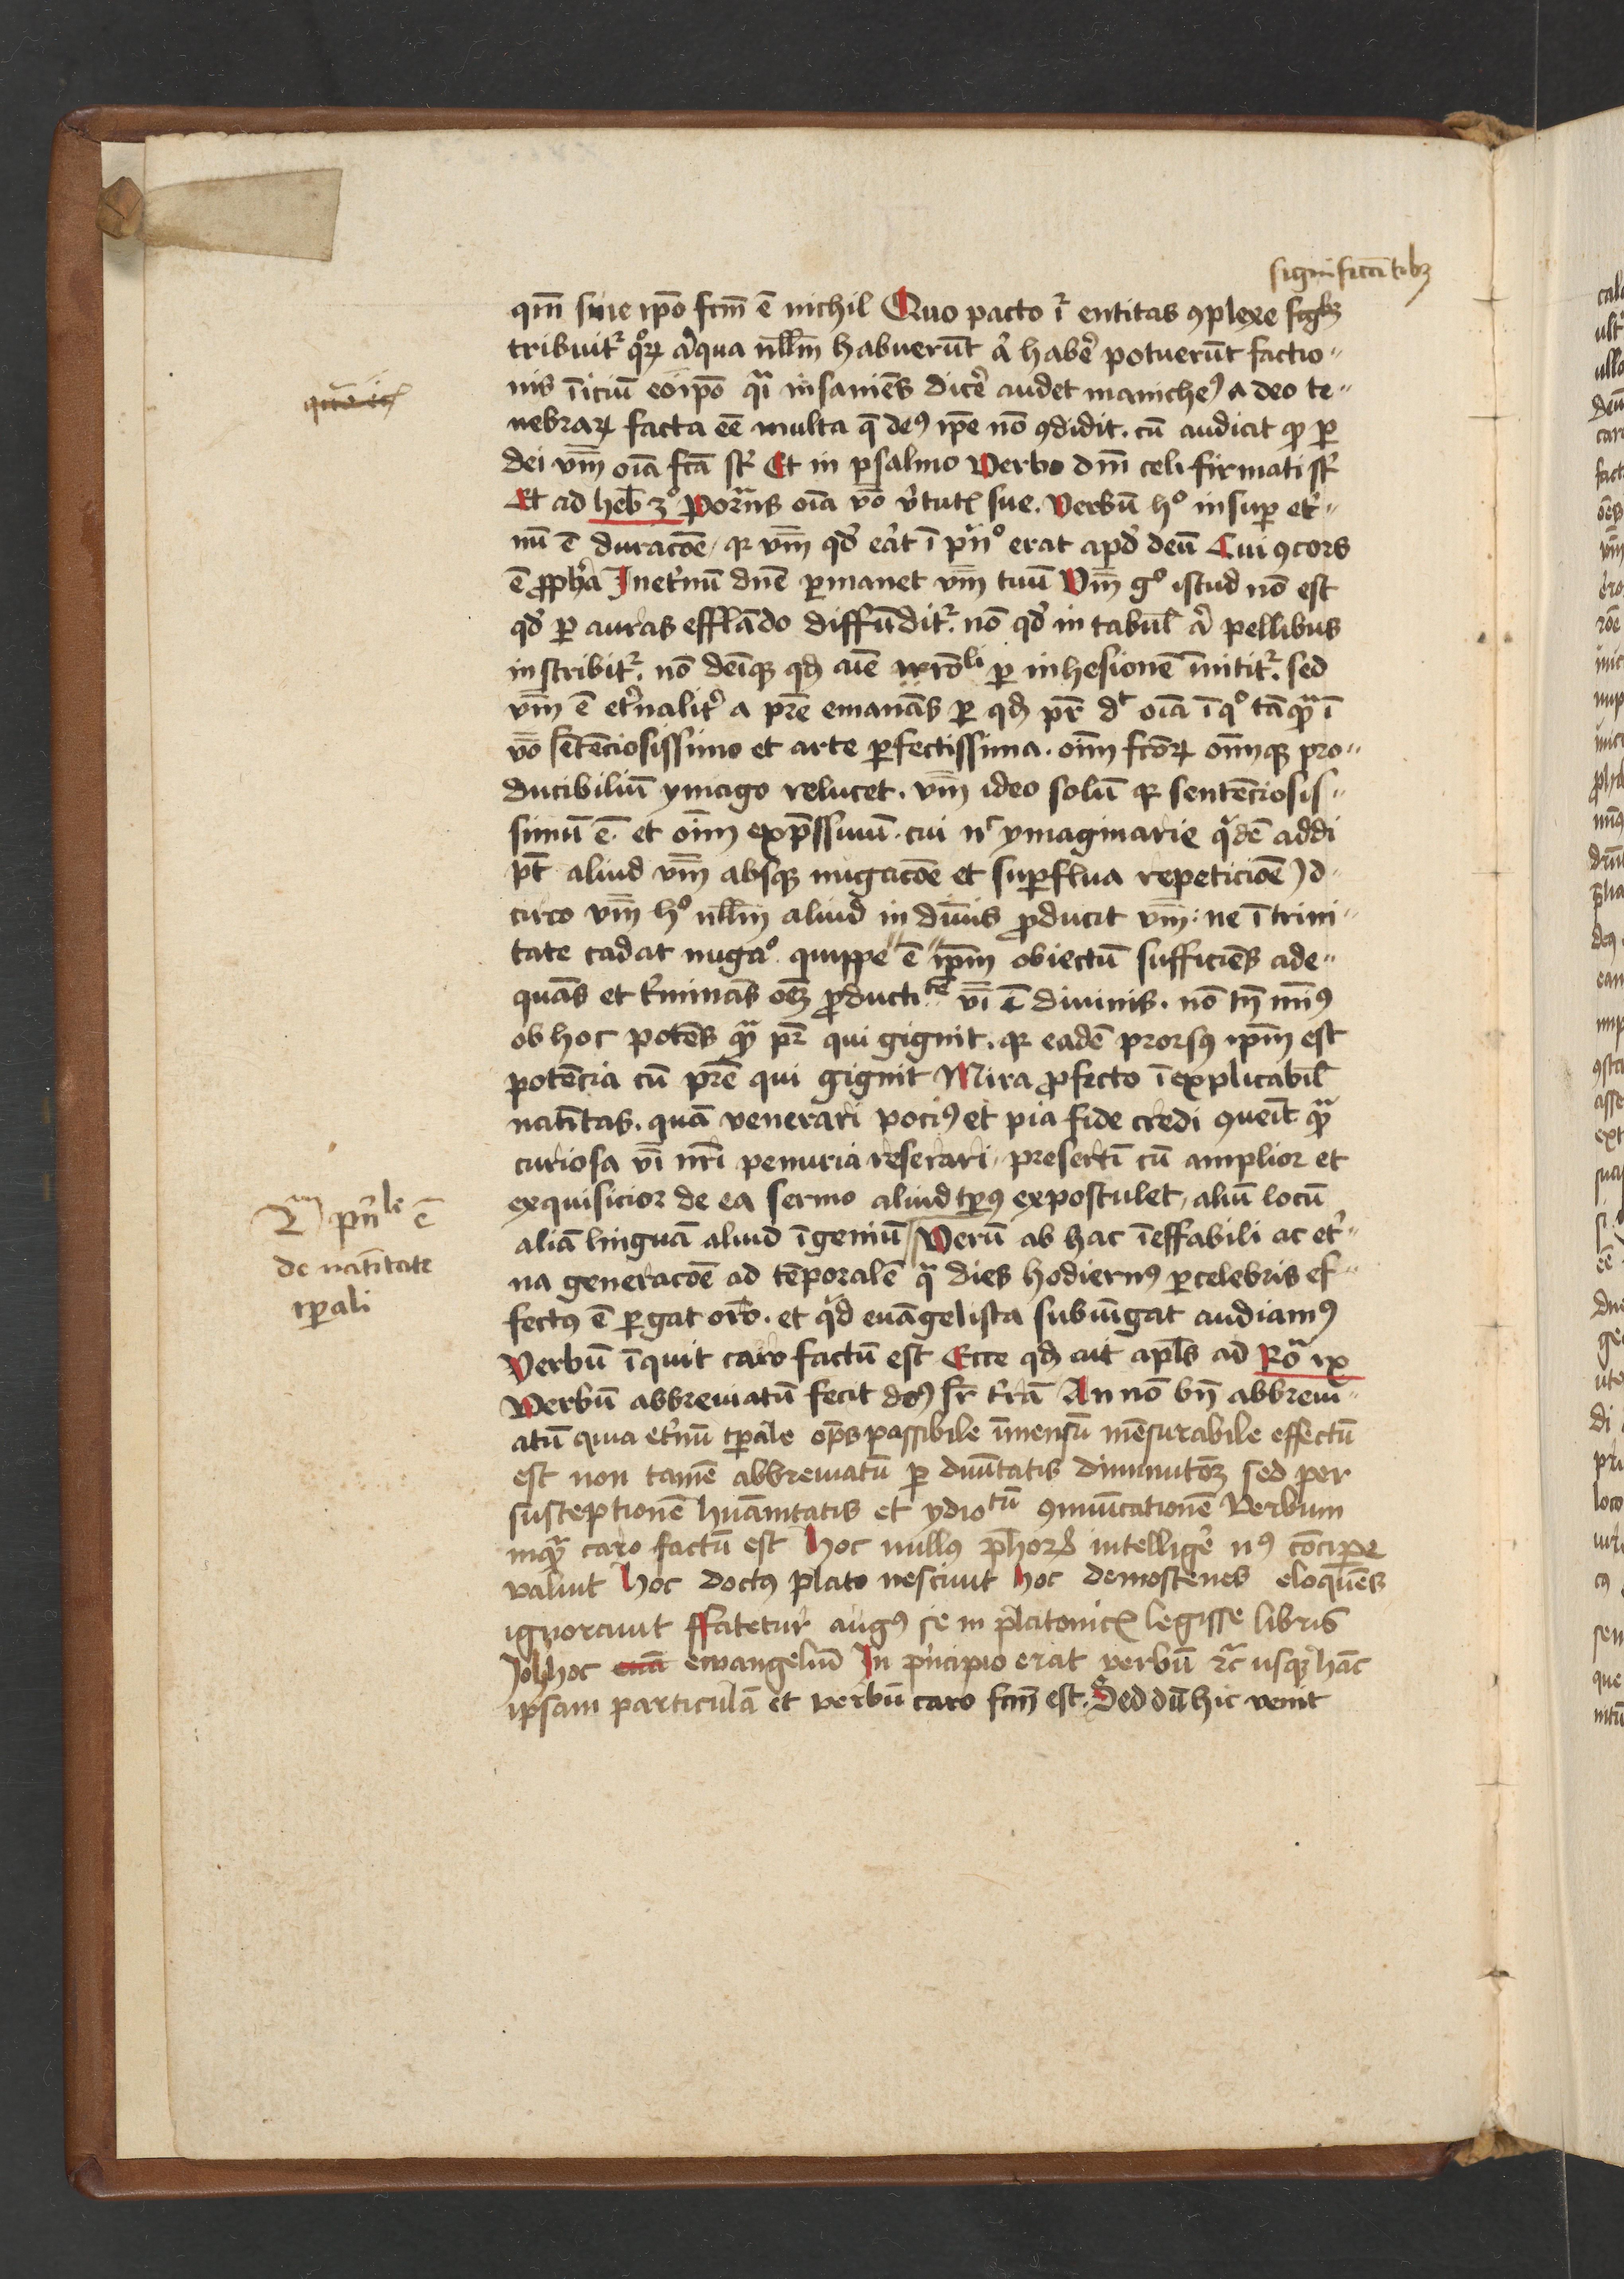 significantibꝫ
qm̄ sine ip̄o fcm̄ ē nichil Quo pacto r̄ entitas ꝯplexe
tribuitᷣ qꝝ aqua nllm̄ habuerūt habē potuerūt factio-
nis īiciū eoip̄o insaniēs dicē audet manicheꝰ a deo te-
nebraꝝ facta eē multa q̄ deꝰ ip̄e nō ꝯdidit. cū audiat ꝙ ꝑ
dei vm̄ oīa fcā st̄ Et in psalmo Verbo dn̄i celi firmati st̄
Et ad heb̄ 3º Portans oīa v̄o v̓tutꝭ sue. Verbū hº insuꝑ et̓-
nū ē duracōe, qꝛ vm̄ qd̓ erat ī pn̓º erat apd̓ deū Cui ꝯcors
ē ꝓph̓a In et̓nū dn̄e ꝑmanet vm̄ tuū Vm̄ gº istud nō est
qd̓ ꝑ auras efflādo diffūditᷣ. nō qd̓ in tabul̄ pellibus
inscribitᷣ. nō deīqꝫ qd̓ aīe ꝑ inhesionē īnititᷣ. sed
vm̄ ē et̓nalit̓ a pr̄e emanās ꝑ qd̓ pr̄ oīa ī qº tāꝙ̄ ī
v̄o sētēciosissimo et arte ꝑfectissima. oīm fcōꝝ oīmqꝫ pro-
ducibiliū ymago relucet. vm̄ ideo solū qꝛ sentēciosis-
simū ē. et oīm exp̄ssiuū. cui nͨ ymaginarie qͥdē addi
pt̄ aliud vm̄ absqꝫ nugacōe et suꝑflua repeticiōe Id-
circo vm̄ hº nllm̄ aliud in diuīs ꝓducit vm̄. ne ī trini-
tate cadat nugaº quippe ē ip̄m obiectū sufficiēs ade-
quās et t̓minās oēꝫ ꝓductiᵗᵉ vī ī diuinis. nō tn̄ minꝰ
ob hoc potēs ꝙ̄ pr̄ qui gignit. qꝛ eadē prorsꝰ ip̄m est
potēcia cū pr̄e qui gignit Mira ꝓfecto īexplicabil̄
natītas. quā venerari pociꝰ et pia fide credi ꝙ̄
curiosa vī nr̄i penuria reserari, presertī cū amplior et
exquisicior de ea sermo aliud tp̄us expostulet, aliū locū
aliā linguā aliud īgeniū Verū ab hac īeffabili ac et̓-
Rᵃᵐ pn̓ˡᵉ ē
de natītate
tp̄ali
na generacōe ad tēporalē qͣ dies hodiernꝰ ꝑcelebris ef-
fectꝰ ē ꝑgat orō. et qͥd euāgelista subiūgat audiamꝰ
Verbū īquit caro factū est Ecce qd̓ ait apl̄s ad Roͣ ix
Verbū abbreuiatū fecit dn̄ꝰ sr̄ t̓rā An nō bn̄ abbreui-
atū quia et̓nū tp̄ale op̄s passibile īmensū mēsurabile effectū
est non tamē abbreuiatū ꝑ diuītatis diminutōꝫ sed per
susceptionē huāitatis et ydioᵗū ꝯmuīcationē Verbum
inquā caro factū est Hoc nullꝰ phōꝝ intelligē concipe
valuit Hoc doctꝰ plato nesciuit Hoc demostenes eloquēs
ignorauit ffatetur augꝰ se in platonicꝭ legisse libris
Joh̄ hoc ewangeliū In p̓ncipio erat verbū ⁊c̄ usqꝫ hāc
ipsam particulā et verbū caro fcm̄ est. Sed dū hic venit